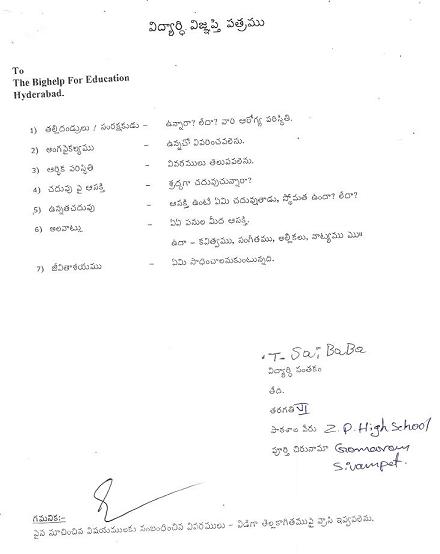 విద్యార్ధి విజ్ఞప్తి పత్రము
To
The Bighelp For Education
Hyderabad.
1) తల్లిదండ్రులు / సంరక్షకుడు – ఉన్నారా? లేదా? వారి ఆరోగ్య పరిస్థితి.
2) అంగవైకల్యము – ఉన్నచో వివరించవలెను.
3) ఆర్ధిక పరిస్థితి – వివరములు తెలుపవలెను.
4) చదువు పై ఆసక్తి – శ్రద్ధగా చదువుచున్నారా?
5) ఉన్నతచదువు – ఆసక్తి ఉంటే ఏమి చదువుతాడు, స్థోమత ఉందా? లేదా?
6) అలవాట్లు – ఏఏ పనుల మీద ఆసక్తి.
ఉదా – కవిత్వము, సంగీతము, అల్లికలు, నాట్యము ము॥
7) జీవితాశయము – ఏమి సాధించాలనుకుంటున్నది.
T- Sai BaBa
విద్యార్ధి సంతకం
తేది.
తరగతి VI
పాఠశాల పేరు Z.P. High School
పూర్తి చిరునామా Gomaram
Sivampet.
గమనిక:-
పైన సూచించిన విషయములకు సంబంధించిన వివరములు – విడిగా తెల్లకాగితముపై వ్రాసి ఇవ్వవలెను.